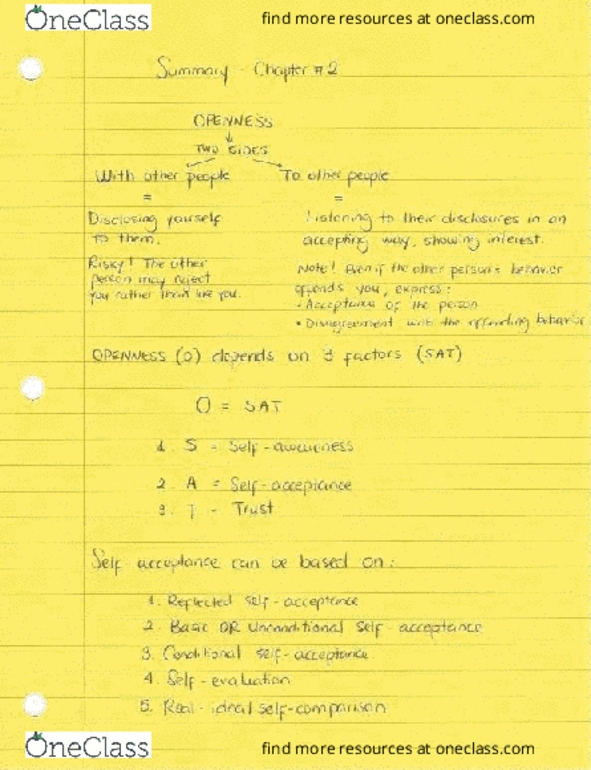 OneClass find more resources at oneclass.com
Summary - Chapter #2
OPENNESS
TWO SIDES
With other people To other people
= =
Disclosing yourself
to them.
Risky! The other
person may reject
you rather than like you.
Listening to their disclosures in an
accepting way, showing interest.
Note! Even if the other person's behavior
offends you, express:
• Acceptance of the person
• Disagreement with the offending behavior
OPENNESS (O) depends on 3 factors (SAT)
O = SAT
1. S = Self-awareness
2. A = Self-acceptance
3. T - Trust
Self acceptance can be based on:
1. Reflected self-acceptance
2. Basic OR Unconditional self-acceptance
3. Conditional self-acceptance
4. Self-evaluation
5. Real-ideal self-comparison
OneClass find more resources at oneclass.com